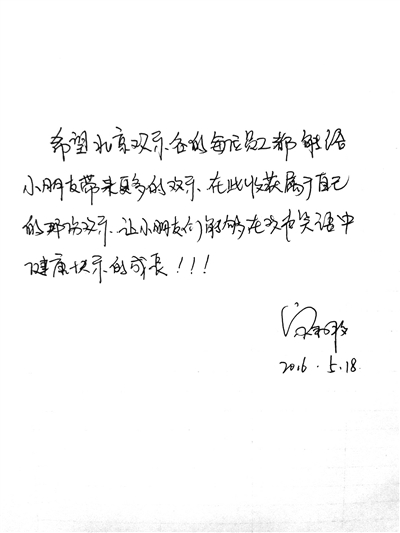 希望北京欢乐谷的每位员工都能给
小朋友带来更多的欢乐、在此收获属于自己
的那份欢乐、让小朋友们能够在欢声笑语中
健康快乐的成长！！！
2016.5.18